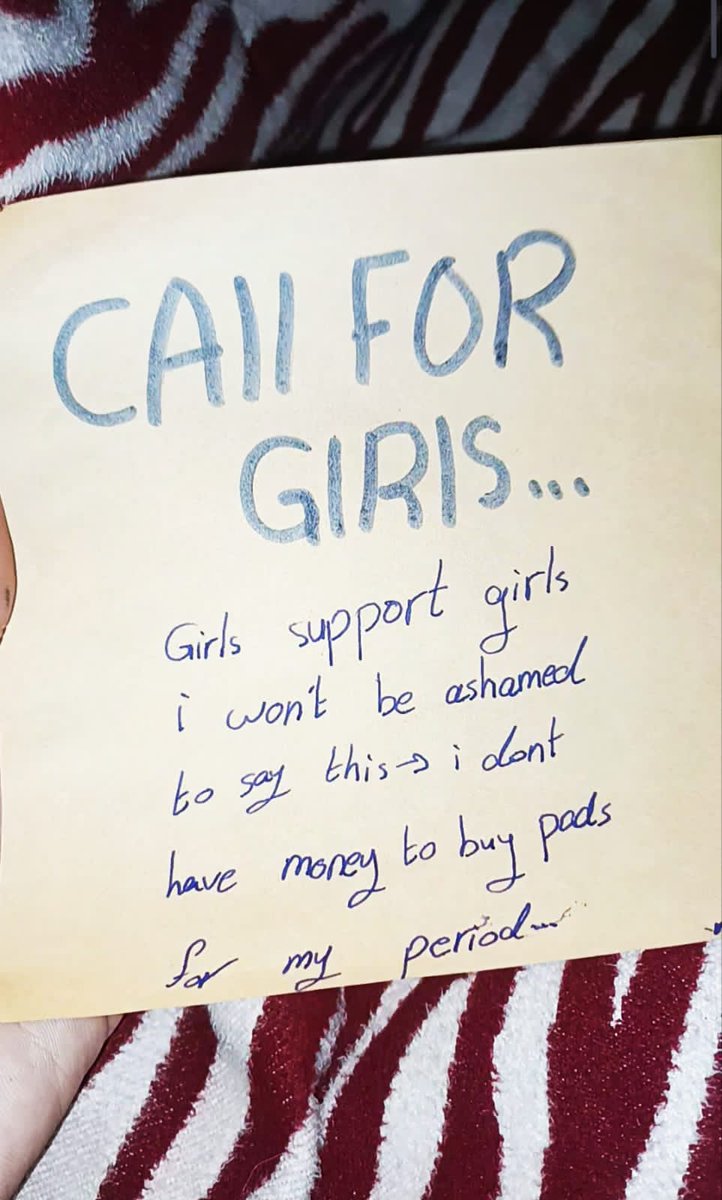 CAll FOR
GIRlS...
Girls support girls
i won't be ashamed
to say this → i dont
have money to buy pads
for my period...